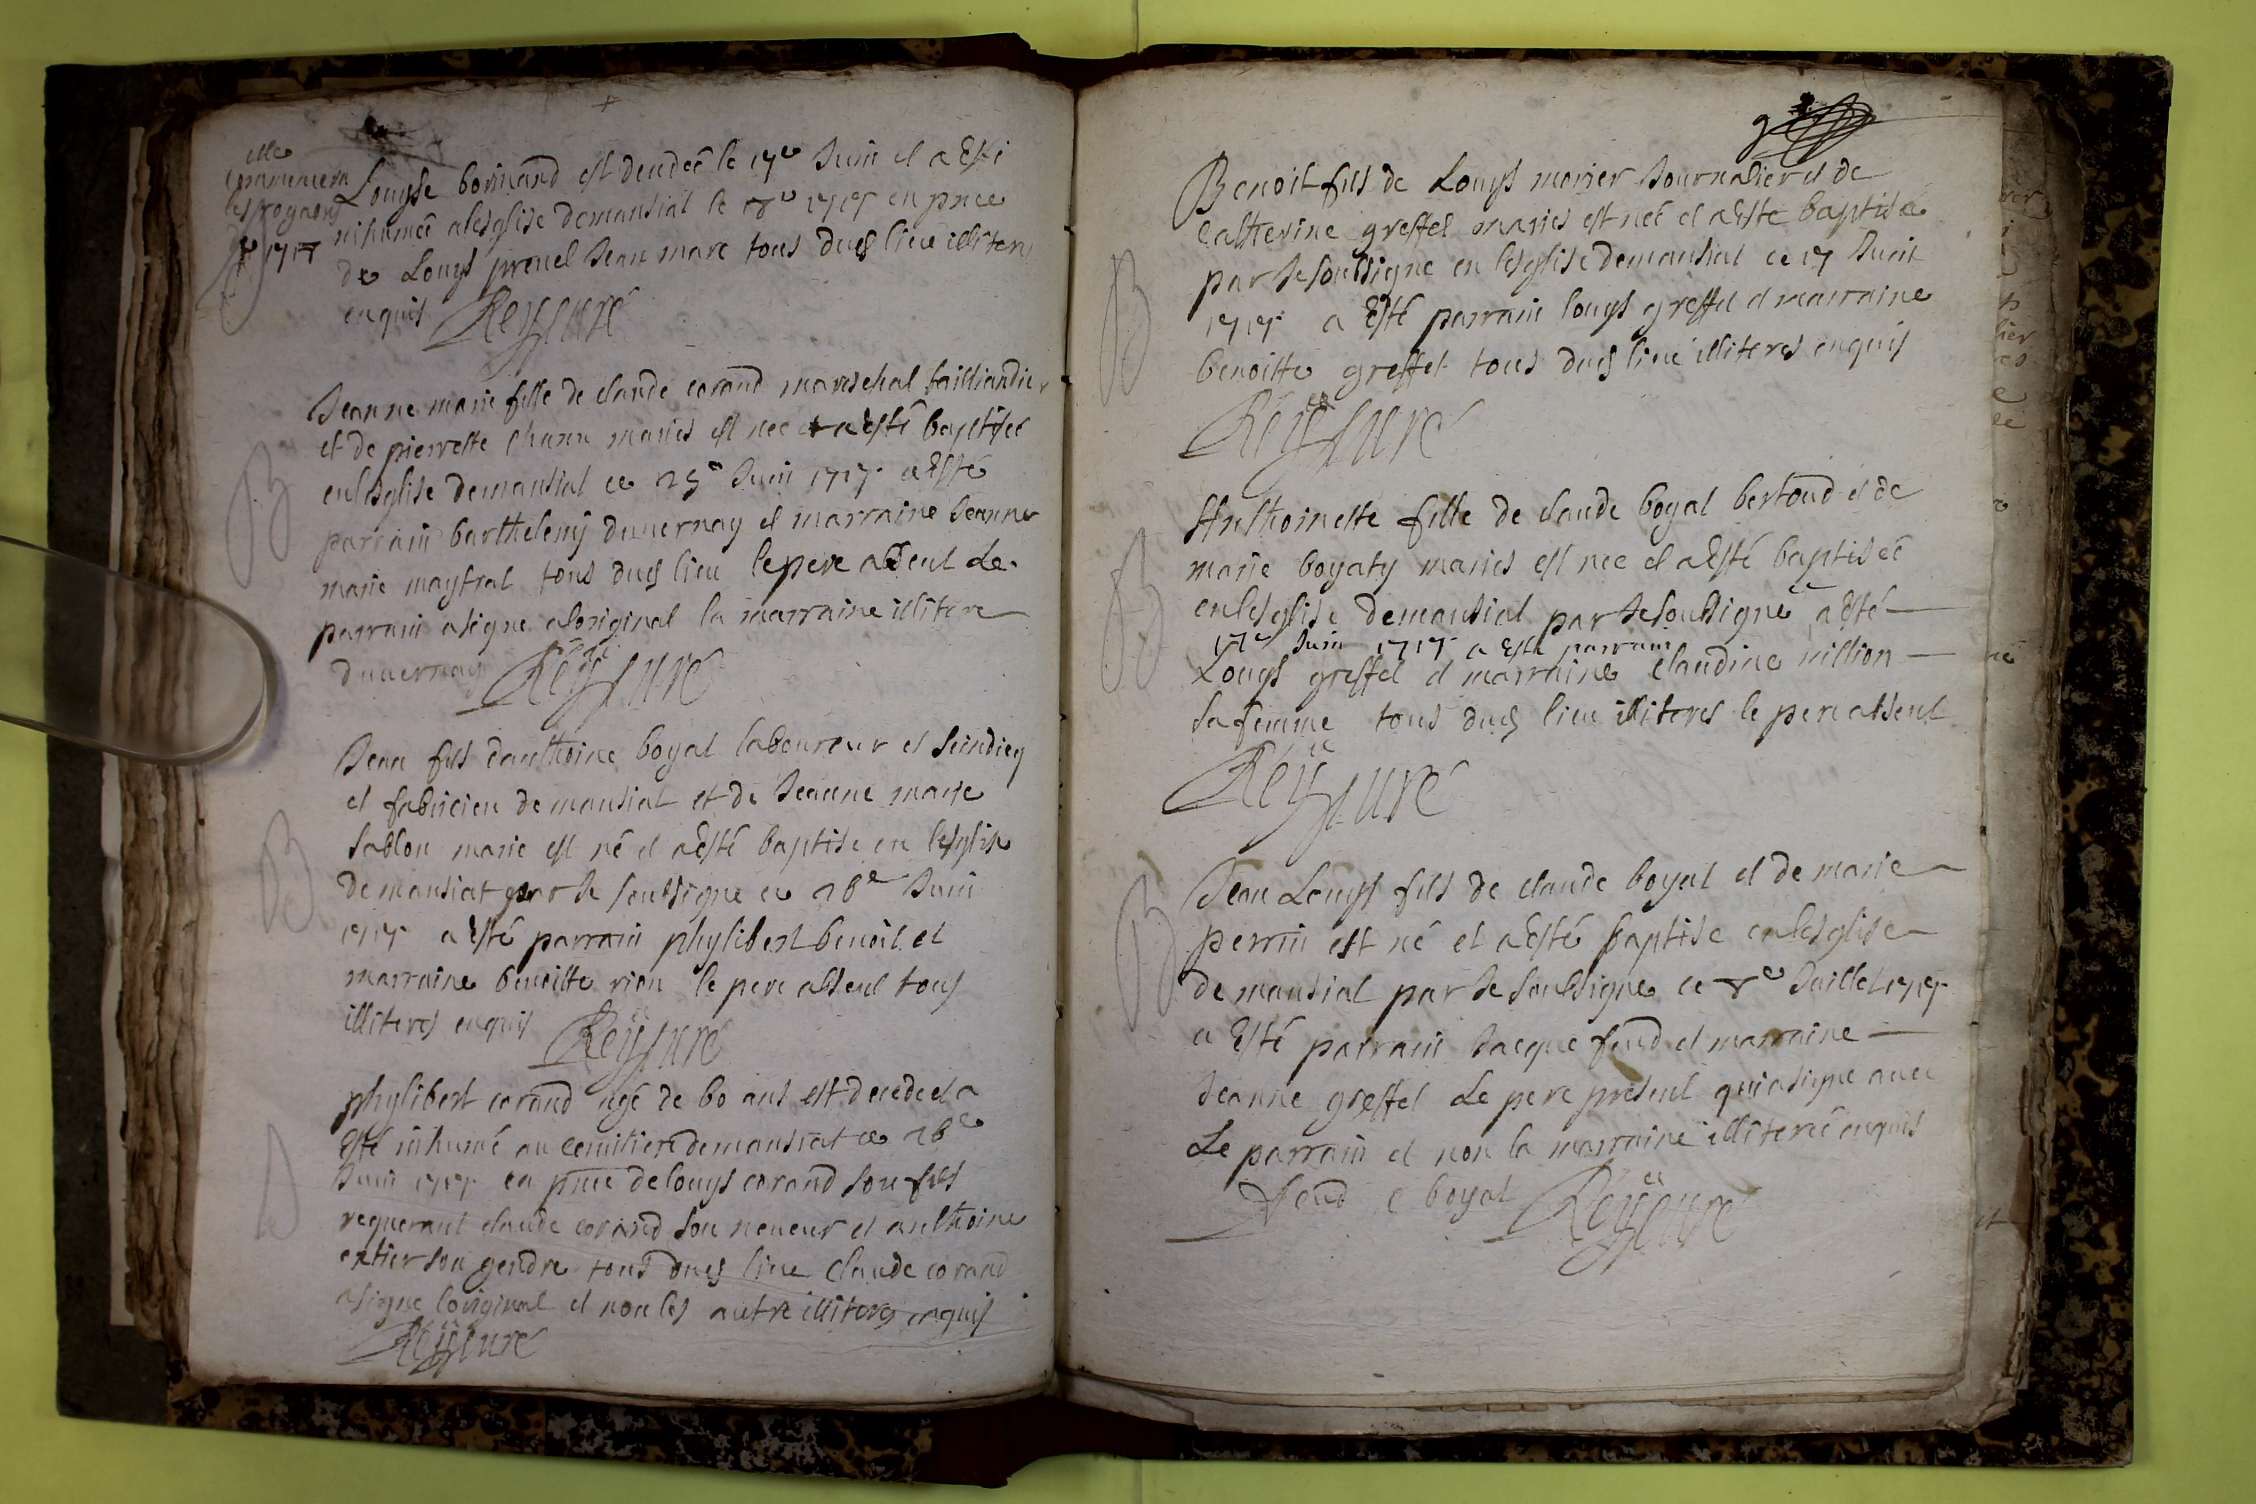 elle
Louyse borinand est decedeé le 17e Juin el a Esté
inhumeé a lesglise demansiat le 18e 1717 en pnce
1717
de Louys prevel Jean marc tous dud lieu illiteres
enquis Reÿ curé
Jeanne marie fille de claude corand mareschal tailliandier
et de pierrette chanu mariés est nee et a esté baptiseé
enlesglise demansiat ce 25e Juin 1717 a Esté
B
parrain barthelemy duvernay el marraine Jeanne
marie maystral tous dud lieu le pere absent Le
parrain a signe a loriginal la marraine illitere
duvernay Reÿ curé
Jean fils danthoine boyat laboureur et scindicq
el fabricien de mansiat et de Jeanne marie
Sablon marié est né el a esté baptise en lesglise
B
de mansiat par Je soubsigne ce 26e Juin
1717 a Esté parrain phylibert benoit et
marraine benoitte rion le pere absent tous
illiteres enquis Reÿ curé
phylibert corand agé de 60 ans est decede el a
Esté inhumé au cemitiere demansiat ce 26e
Juin 1717 en pnce de louys corand son fils
requerant claude corand son neveur et anthoine
extier son gendre tous dud lieu Claude corand
a signe loriginal el non les autre illiteres enquis
Reÿ curé
9
Benoit fils de Louys morier Journalier el de
Catherine greffet mariés est neé el a Esté baptisé
par Je soubsigne en lesglise demansiat ce 17 Juin
B
1717 a Esté parrain louys greffet el marraine
benoitte greffet tous dud lieu illiteres enquis
Reÿ curé
Anthoinette fille de claude boyat bertoud el de
marie boyaty mariés est nee el a Esté baptiseé
B
enlesglise demansiat par Je soubsigne ce a Esté
17e Juin 1717 a Esté parrain
Louys greffet el marraine claudine nillion
sa femme tous dud lieu illiteres le pere absent
Reÿ curé
Jean Louys fils de claude boyat el de marie
B
perrin est né et a Esté baptise enlesglise
de mansiat par Je soubsigne ce 8e Juillet 1717
a Esté parrain Jacque feud el marraine
Jeanne greffet Le pere present qui a signe avec
Le parrain el non la marraine illitereé enquis
feud c boyat Reÿ curé